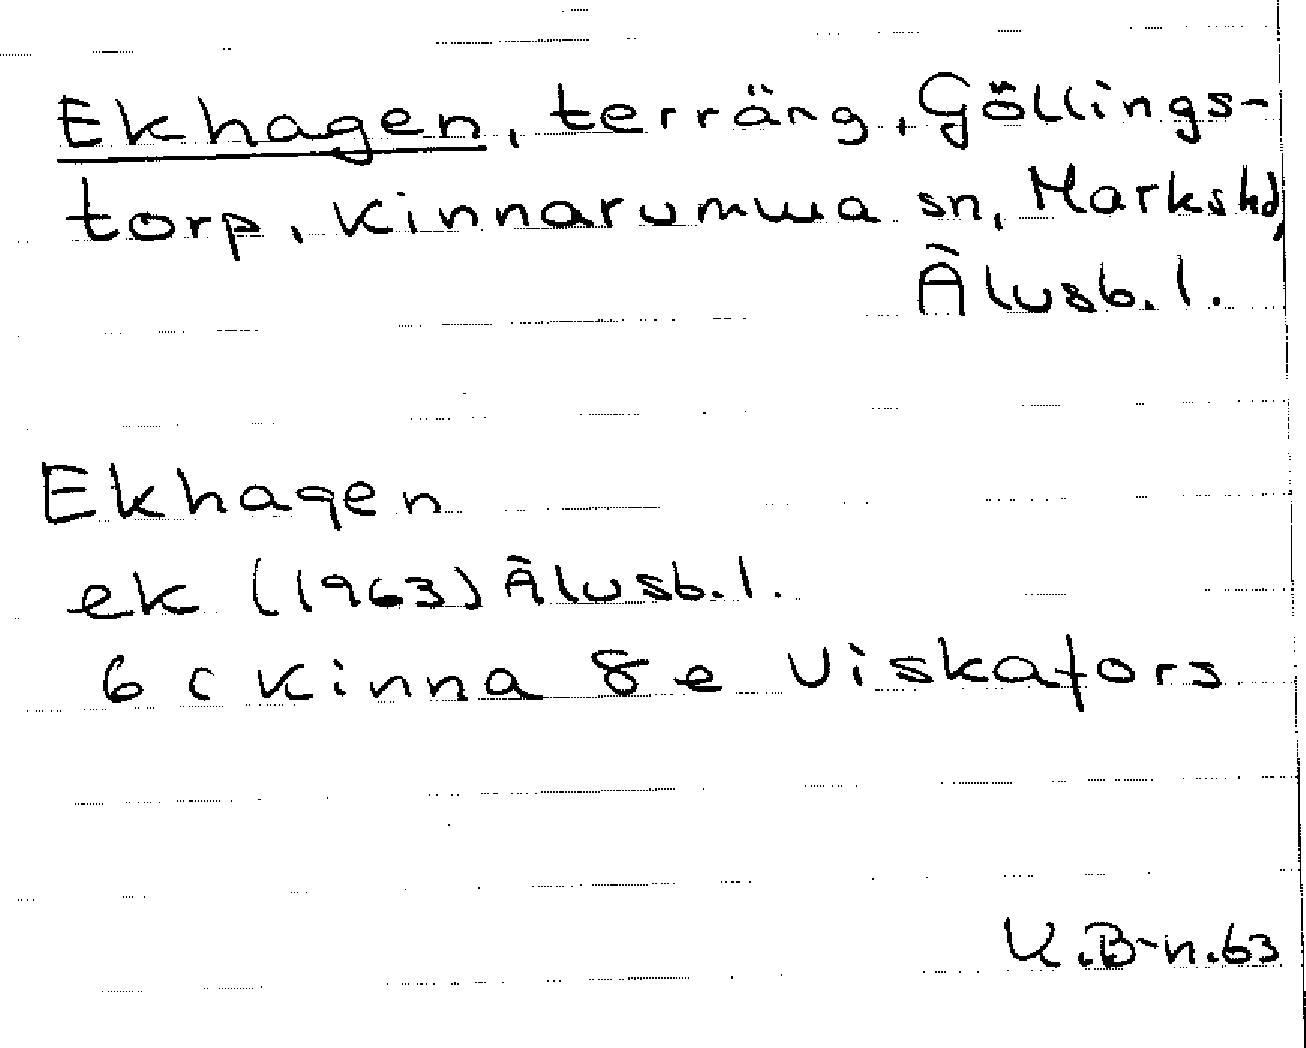 Ekhagen, terräng, Göllings-
torp, Kinnarumma sn, Marks hd,
Älvsb. l.
Ekhagen
ek (1963) Älvsb. l.
6 c Kinna 8 e Viskafors
K.B-n.63